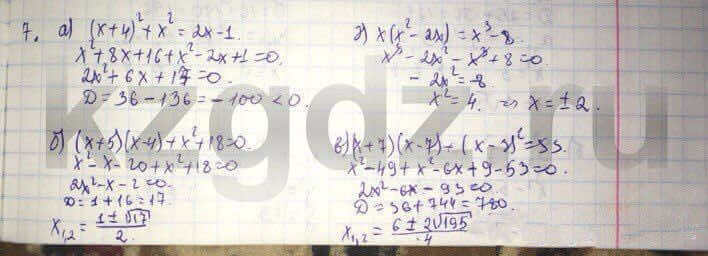 7. а) (x+4)² + x² = 2x - 1.
x² + 8x + 16 + x² - 2x + 1 = 0.
2x² + 6x + 17 = 0.
D = 36 - 136 = -100 < 0.
г) x(x² - 2x) = x³ - 8.
x³ - 2x² - x³ + 8 = 0.
- 2x² = -8.
x² = 4. ⇒ x = ± 2.
б) (x+5)(x-4) + x² + 18 = 0.
x² - x - 20 + x² + 18 = 0
2x² - x - 2 = 0.
D = 1 + 16 = 17.
x₁,₂ = (1 ± √17)/2.
в) (x+7)(x-7) + (x-3)² = 53.
x² - 49 + x² - 6x + 9 - 53 = 0.
2x² - 6x - 93 = 0.
D = 36 + 744 = 780.
x₁,₂ = (6 ± 2√195)/4
kzgdz.ru